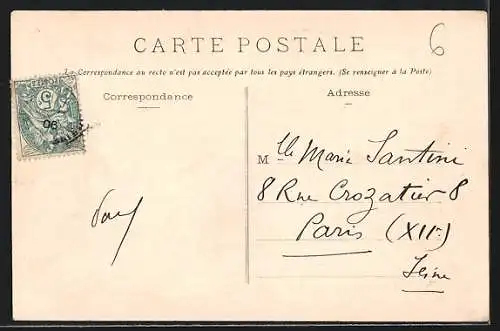 6
CARTE POSTALE
La Correspondance au recto n'est pas acceptée par tous les pays étrangers. (Se renseigner à la Poste)
Correspondance
Adresse
5
06
Mlle Maria Santini
8 Rue Crozatier 8
Paris (XIIe)
Seine